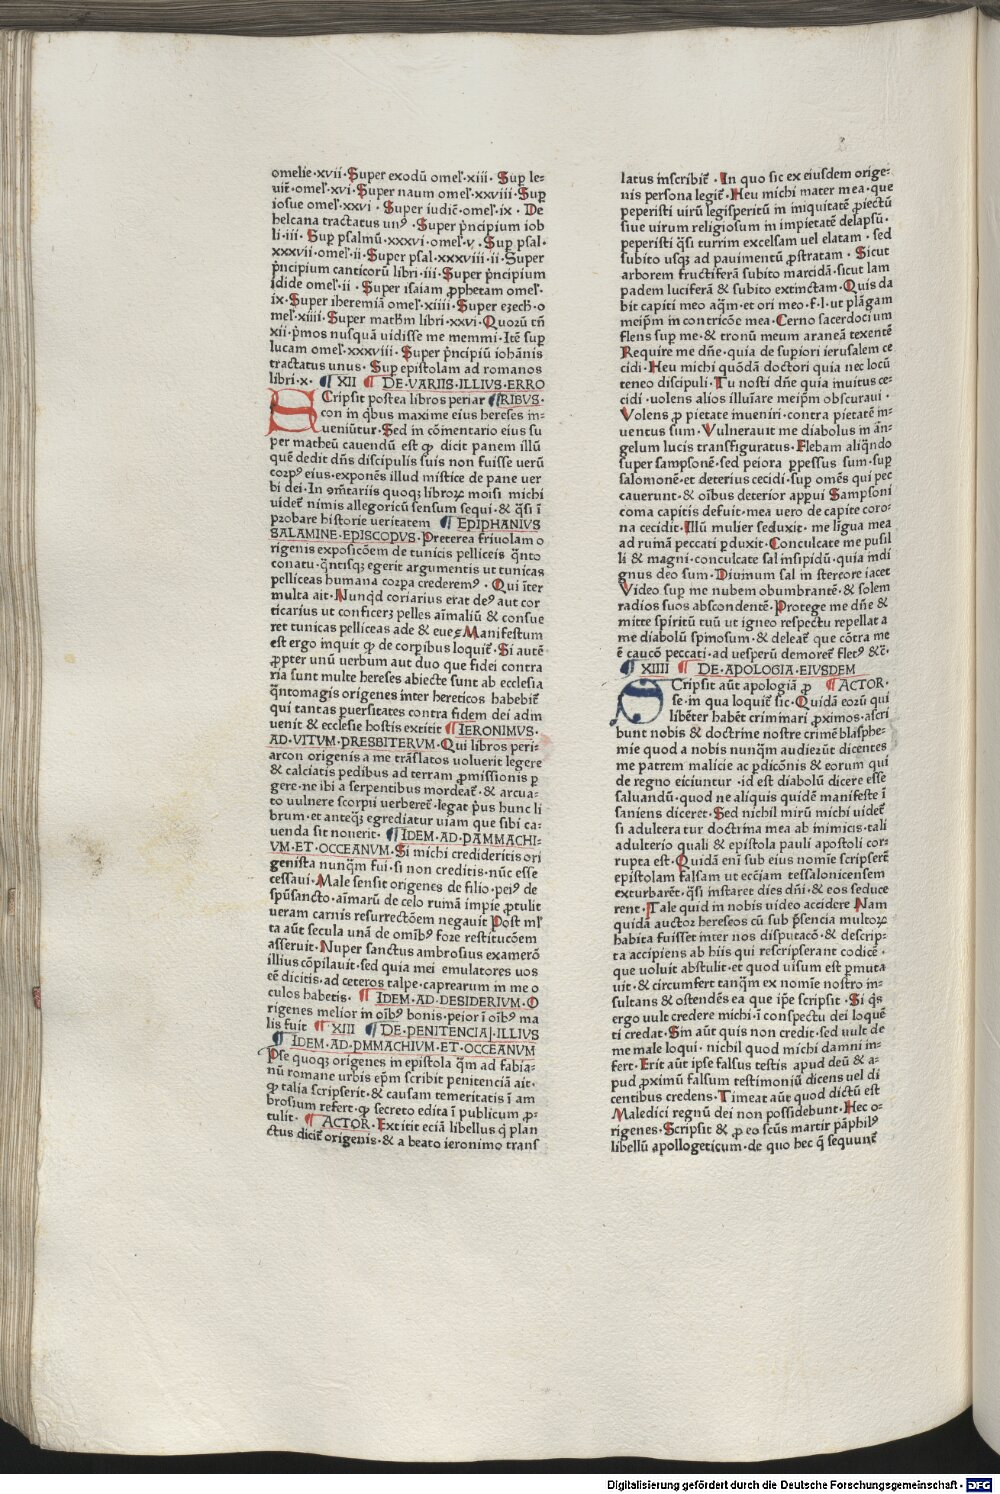 omelie·xvii·Super exodū omel̄·xiii· Sup le-
uit̄·omel̄·xvi·Super naum omel̄·xxviii·Sup
iosue omel̄·xxvi · Super iudic̄·omel̄·ix · De
helcana tractatus unꝰ ·Super p̄ncipium iob
li·iii· Sup psalmū·xxxvi·omel̄·v· Sup psal·
xxxvii·omel̄·ii·Super psal·xxxviii·ii·Super
p̄ncipium canticorū libri·iii·Super p̄ncipium
ididē omel̄·ii · Super isaiam ꝓphetam omel̄·
ix·Super iheremiā omel̄·xiiii·Super ezech̄·o
mel̄·xiiii·Super math̄m libri·xxvi·Quorū tn̄
xii·p̄mos nusquā uidisse me memmi·Itē sup
lucam omel̄·xxxviii· Super p̄ncipiū iohānis
tractatus unus· Sup epistolam ad romanos
libri·x· ¶ XII ¶ DE·VARIIS·ILLIVS·ERRO
SCripsit postea libros periar ¶RIBVS·
con in q̄bus maxime eius hereses in-
ueniūtur·Sed in cōmentario eius su
per matheū cauendū est ꝙ dicit panem illū
quē dedit dn̄s discipulis suis non fuisse uerū
corpꝰ eius·exponēs illud mistice de pane uer
bi dei·In ꝯm̄tariis quoqꝫ libroꝝ moisi michi
uidet̄ nimis allegoricū sensum sequi·& q̄si ī
probare historie ueritatem ¶ EPIPHANIVS
SALAMINE·EPISCOPVS·Preterea friuolam o
rigenis exposicōem de tunicis pelliceis q̄nto
conatu·q̄ntisqꝫ egerit argumentis ut tunicas
pelliceas humana corpa crederemꝰ · Qui īter
multa ait·Nunq̄d coriarius erat deꝰ aut cor
ticarius ut conficerꝫ pelles aīmaliū & consue
ret tunicas pelliceas ade & eue·Manifestum
est ergo inquit ꝙ de corpibus loquit̄· Si autē
ꝓpter unū uerbum aut duo que fidei contra
ria sunt multe hereses abiecte sunt ab ecclesia
q̄ntomagis origenes inter hereticos habebit̄
qui tantas puersitates contra fidem dei adm
uenit & ecclesie hostis extitit ¶ IERONIMVS·
AD·VITVM·PRESBITERVM·Qui libros peri-
arcon origenis a me trāslatos uoluerit legere
& calciatis pedibus ad terram ꝓmissionis p
gere·ne ibi a serpentibus mordeat̄·& arcua-
to uulnere scorpii uerberet̄·legat p̄us hunc li
brum·et anteqꝫ egrediatur uiam que sibi ca-
uenda sit nouerit· ¶IDEM·AD·PAMMACHI-
VM·ET·OCCEANVM·Si michi credideritis ori
genista nunq̄m fui·si non creditis·nūc esse
cessaui·Male sensit origenes de filio·peiꝰ de
sp̄usancto·aīmarū de celo ruinā impie ꝓtulit
ueram carnis resurrectōem negauit Post ml̄
ta aūt secula unā de omībꝰ fore restitucōem
asseruit·Nuper sanctus ambrosius examerō
illius cōpilauit·sed quia mei emulatores uos
eē dicitis·ad ceteros talpe·caprearum in me o
culos habetis· ¶ IDEM·AD·DESIDERIVM·O
rigenes melior in oībꝰ bonis·peior ī oībꝰ ma
lis fuit ¶ XIII ¶ DE·PENITENCIA·ILLIVS
¶ IDEM·AD·PMMACHIVM·ET·OCCEANVM
IPse quoqꝫ origenes in epistola q̄m ad fabia-
nū romane urbis ep̄m scribit penitenciā ait·
ꝙ talia scripserit·& causam temeritatis ī am
brosium refert·ꝙ secreto edita ī publicum ꝓ-
tulit· ¶ ACTOR·Extitit eciā libellus q̄ plan
ctus dicit̄ origenis·& a beato ieronimo transf
latus inscribit̄ ·In quo sic ex eiusdem orige-
nis persona legit̄·Heu michi mater mea·que
peperisti uirū legisperitū in iniquitatē ꝓiectū
siue uirum religiosum in impietatē delapsū·
peperisti q̄si turrim excelsam uel elatam · sed
subito usqꝫ ad pauimentū ꝓstratam · Sicut
arborem fructiferā subito marcidā·sicut lam
padem luciferā & subito extinctam·Quis da
bit capiti meo aq̄m·et ori meo·f·l·ut plāgam
meip̄m in contricōe mea·Cerno sacerdocium
flens sup me·& tronū meum araneā texentē
Require me dn̄e·quia de supiori ierusalem ce
cidi·Heu michi quōdā doctori quia nec locū
teneo discipuli·Tu nosti dn̄e quia inuitus ce-
cidi ·uolens alios illuīare meip̄m obscuraui ·
Volens ꝓ pietate inueniri·contra pietatē in-
uentus sum·Vulnerauit me diabolus in ān-
gelum lucis transffiguratus·Flebam aliq̄ndo
super sampsonē·sed peiora ppessus sum·sup
salomonē·et deterius cecidi·sup omēs qui pec
cauerunt·& oībus deterior appui Sampsoni
coma capitis defuit·mea uero de capite coro-
na cecidit·Illū mulier seduxit· me līgua mea
ad ruinā peccati pduxit·Conculcate me pusil
li & magni·conculcate sal insipidū·quia indi
gnus deo sum·Diuinum sal in stercore iacet
Video sup me nubem obumbrantē·& solem
radios suos abscondentē·Protege me dn̄e &
mitte spiritū tuū ut igneo respectu repellat a
me diabolū spinosum·& deleat̄ que cōtra me
ē caucō peccati·ad uesperū demoret̄ fletꝰ &c̄·
¶ XIIII ¶ DE·APOLOGIA·EIVSDEM
SCripsit aūt apologiā ꝓ ¶ACTOR·
se·in qua loquit̄ sic·Quidā eorū qui
libēter habēt criminari ꝓximos·ascri
bunt nobis & doctrine nostre crimē blasphe-
mie quod a nobis nunq̄m audierūt dicentes
me patrem malicie ac pdicōnis & eorum qui
de regno eiciuntur ·id est diabolū dicere esse
saluandū·quod ne aliquis quidē manifeste ī
saniens diceret·Sed nichil mirū michi uidet̄
si adultera tur doctrina mea ab inimicis·tali
adulterio quali & epistola pauli apostoli cor-
rupta est·Quidā eni̅ sub eius nomīe scripserūt
epistolam falsam ut ecc̄iam tessalonicensem
exturbarēt·q̄si instaret dies dn̄i·& eos seduce
rent·Tale quid in nobis uideo accidere Nam
quidā auctor hereseos cū sub p̄sencia multoꝝ
habita fuisset inter nos disputacō·& descrip-
ta accipiens ab hiis qui rescripserant codicē ·
que uoluit abstulit·et quod uisum est pmuta
uit·& circumfert tanq̄m ex nomīe nostro in-
sultans & ostendēs ea que ip̄e scripsit ·Si q̄s
ergo uult credere michi·ī conspectu dei loquē
ti credat·Sin aūt quis non credit·sed uult de
me male loqui·nichil quod michi damni in-
fert·Erit aūt ipse falsus testis apud deū & a-
pud ꝓximū falsum testimoniū dicens uel di
centibus credens·Timeat aūt quod dictū est
Maledici regnū dei non possidebunt·Hec o-
rigenes·Scripsit & ꝓ eo scūs martir pāphilꝰ
libellū apollogeticum·de quo hec q̄ sequunt̄
Digitalisierung gefördert durch die Deutsche Forschungsgemeinschaft · DFG